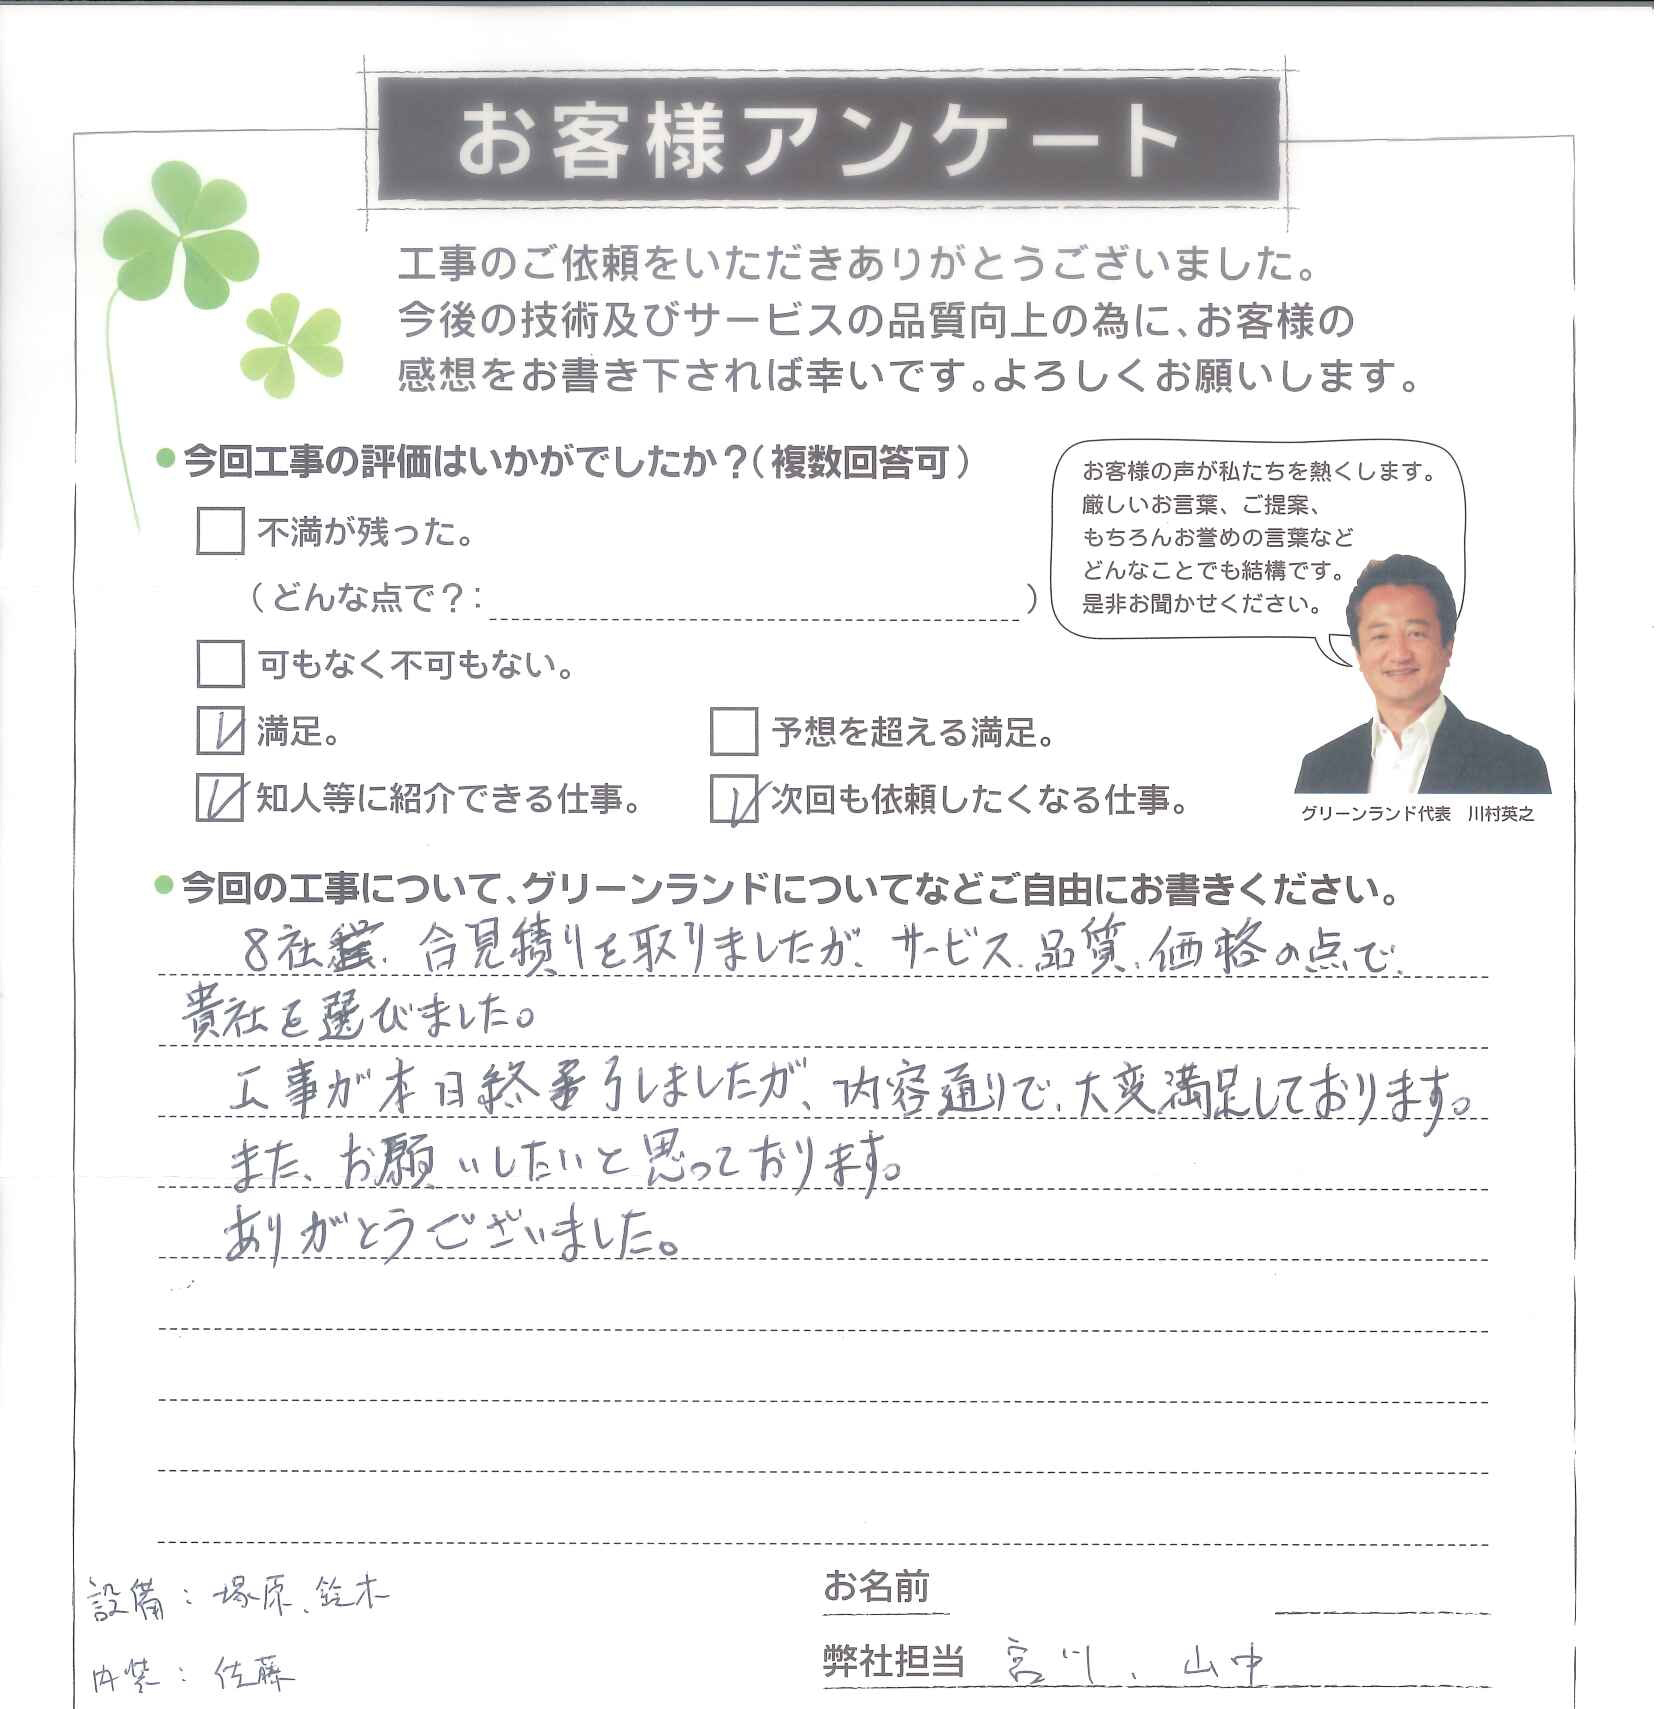 お客様アンケート
工事のご依頼をいただきありがとうございました。
今後の技術及びサービスの品質向上の為に、お客様の
感想をお書き下されば幸いです。よろしくお願いします。
●今回工事の評価はいかがでしたか？（複数回答可）
お客様の声が私たちを熱くします。
厳しいお言葉、ご提案、
もちろんお誉めの言葉など
どんなことでも結構です。
是非お聞かせください。
不満が残った。
（どんな点で？：　）
可もなく不可もない。
満足。
予想を超える満足。
知人等に紹介できる仕事。
次回も依頼したくなる仕事。
グリーンランド代表　川村英之
●今回の工事について、グリーンランドについてなどご自由にお書きください。
8社程、合見積りを取りましたが、サービス、品質、価格の点で、
貴社を選びました。
工事が本日終了しましたが、内容通りで、大変満足しております。
また、お願いしたいと思っております。
ありがとうございました。
設備：塚原、鈴木
内装：佐藤
お名前
弊社担当　宮川、山中